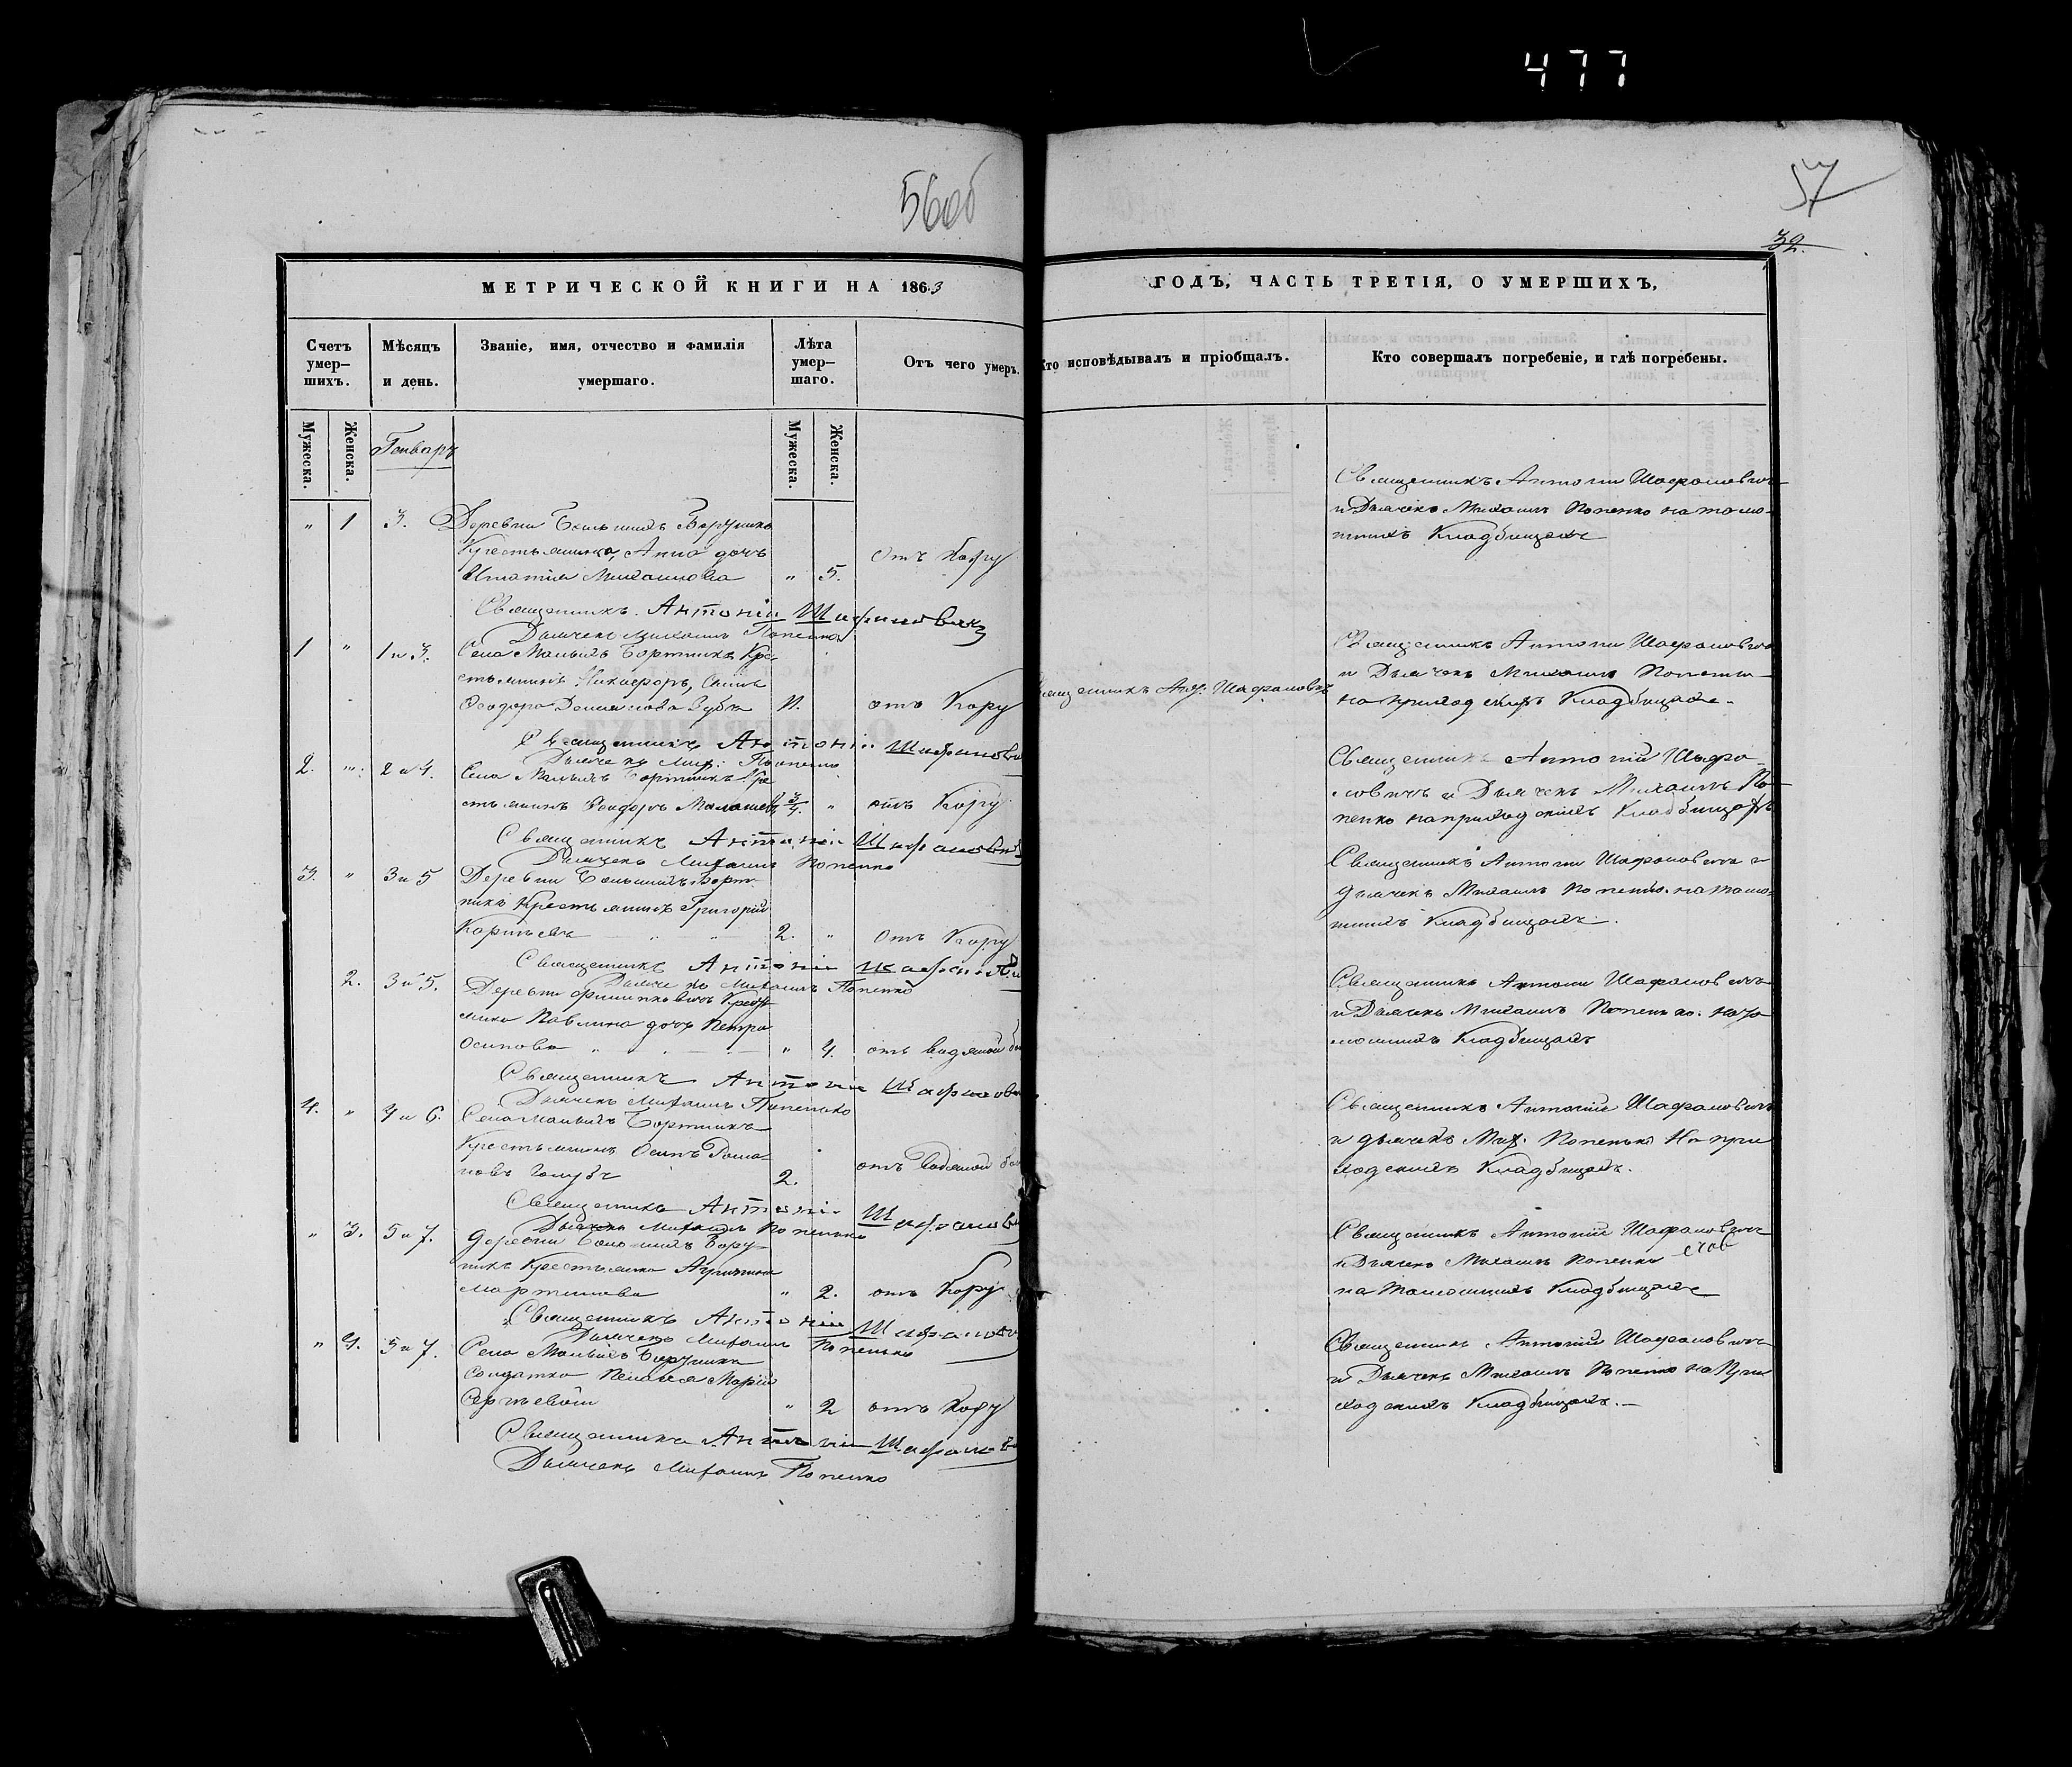 477
56 об
57
32.
МЕТРИЧЕСКОЙ КНИГИ НА 1863
ГОДЪ, ЧАСТЬ ТРЕТІЯ, О УМЕРШИХЪ,
Счетъ умер-
шихъ.
Мѣсяцъ
и день.
Званіе, имя, отчество и фамилія
умершаго.
Лѣта
умер-
шаго.
Отъ чего умеръ.
Кто исповѣдывалъ и пріобщалъ.
Кто совершалъ погребеніе, и гдѣ погребены.
Мужеска.
Женска.
Генваръ
Мужеска.
Женска.
" 1 3. Деревни Большихъ Бортникъ
Крестьянина, Анна дочь
Игнатія Михаилова " 5. Отъ Кору
Священникъ Антоній Шафановичъ
и Дьячекъ Михаилъ Попенко на тамо-
шнихъ Кладбищахъ
Священникъ Антоній Шафановичъ
Дьячекъ Михаилъ Попенко
1 " 1 и 3. Села Малыхъ Бортникъ Кре-
стьянинъ Никифоръ, Сынъ
Феодора отъ Кору
Священникъ Ант: Шафановичъ
Священникъ Антоній Шафановичъ
и Дьячекъ Михаилъ
на приходскихъ Кладбищахъ.
Священникъ Антоній Шафанови
Дьячекъ Мих: Попенко
2. " 2 и 4. Села Малыхъ Бортникъ Кре
стьянинъ Феодоръ 3/4. " отъ Кору
Священникъ Антоній Шафа-
новичъ и Дьячекъ Михаилъ По-
пенко на приходскихъ Кладбищахъ
Священникъ Антоній Шафанови
Дьячекъ Михаилъ Попенко
3. " 3 и 5 Деревни Большихъ Борт-
никъ Крестьянинъ Григорій
2. " Отъ Кору
Священникъ Антоній Шафановичъ и
дьячекъ Михаилъ Попенко. на тамо-
шнихъ Кладбищахъ.
Священникъ Антоній
Дьячекъ Михаилъ Попенко
2. 3 и 5. Деревни
Павлина дочь Петра
Осипова " 4. отъ водяной
Священникъ Антоній Шафановичъ
и Дьячекъ Михаилъ Попенко. на та
мошнихъ Кладбищахъ
Священникъ Антоній Шафанови
Дьячекъ Михаилъ Попенько
4. " 4 и 6. Села Малыхъ Бортникъ
Крестьянинъ Осипъ Рома-
новъ Голубъ 2. отъ водяной
Священникъ Антоній Шафановичъ
и дьячекъ Мих. Попенько На при
ходскихъ Кладбищахъ.
Священникъ Антоній Шафанови
Дьячекъ Михаилъ Попенько
" 3. 5 и 7. деревни Большихъ Борт-
никъ Крестьянка
Мартинова " 2. отъ Кору
Священникъ Антоній Шафановичъ
и Дьячекъ Михаилъ Попенко
на Тамошнихъ Кладбищахъ
Священникъ Антоній Шафанов
Дьячекъ Михаилъ Попенько
" 4. 5 и 7. Села Малыхъ Бортникъ
Солдатка Пелагея Марій
" 2 отъ Кору
Священникъ Антоній Шафановичъ
и Дьячекъ Михаилъ Попенко на При
ходскихъ Кладбищахъ.
Священникъ Антоній Шафанов
Дьячекъ Михаилъ Попенко